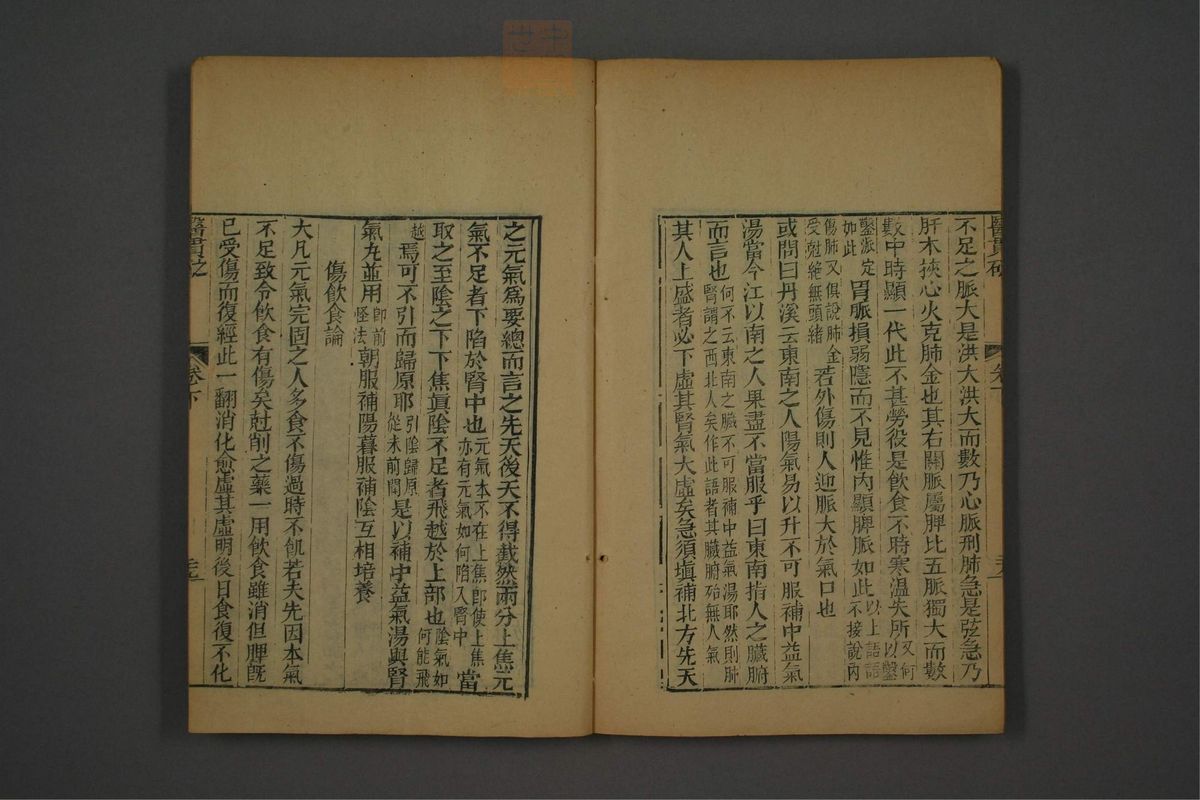 醫貫砭
卷下
不足之脈大是洪大洪大而數乃心脈刑肺急是弦急乃
肝木挾心火克肺金也其右關脈屬脾比五脈獨大而數
數中時顯一代此不甚勞役是飲食不時寒溫失所又何以鑿
鑿派定如此胃脈損弱隱而不見惟內顯脾脈如此以上語語不接說內
傷肺又俱說肺金受尅絕無頭緒若外傷則人迎脈大於氣口也
或問曰丹溪云東南之人陽氣易以升不可服補中益氣
湯當今江以南之人果盡不當服乎曰東南指人之臟腑
而言也何不云東南之臟不可服補中益氣湯耶然則肺腎謂之西北人矣作此語者其臟腑殆無人氣
其人上盛者必下虛其腎氣大虛矣急須塡補北方先天
之元氣爲要總而言之先天後天不得截然兩分上焦元
氣不足者下陷於腎中也元氣本不在上焦卽使上焦亦有元氣如何陷入腎中當
取之至陰之下下焦眞陰不足者飛越於上部也陰氣如何能飛
越焉可不引而歸原耶引陰歸原從未前聞是以補中益氣湯與腎
氣丸並用卽前怪法朝服補陽暮服補陰互相培養
傷飲食論
大凡元氣完固之人多食不傷過時不飢若夫先因本氣
不足致令飲食有傷矣尅削之藥一用飲食雖消但脾旣
已受傷而復經此一翻消化愈虛其虛明後日食復不化
醫貫砭
卷下